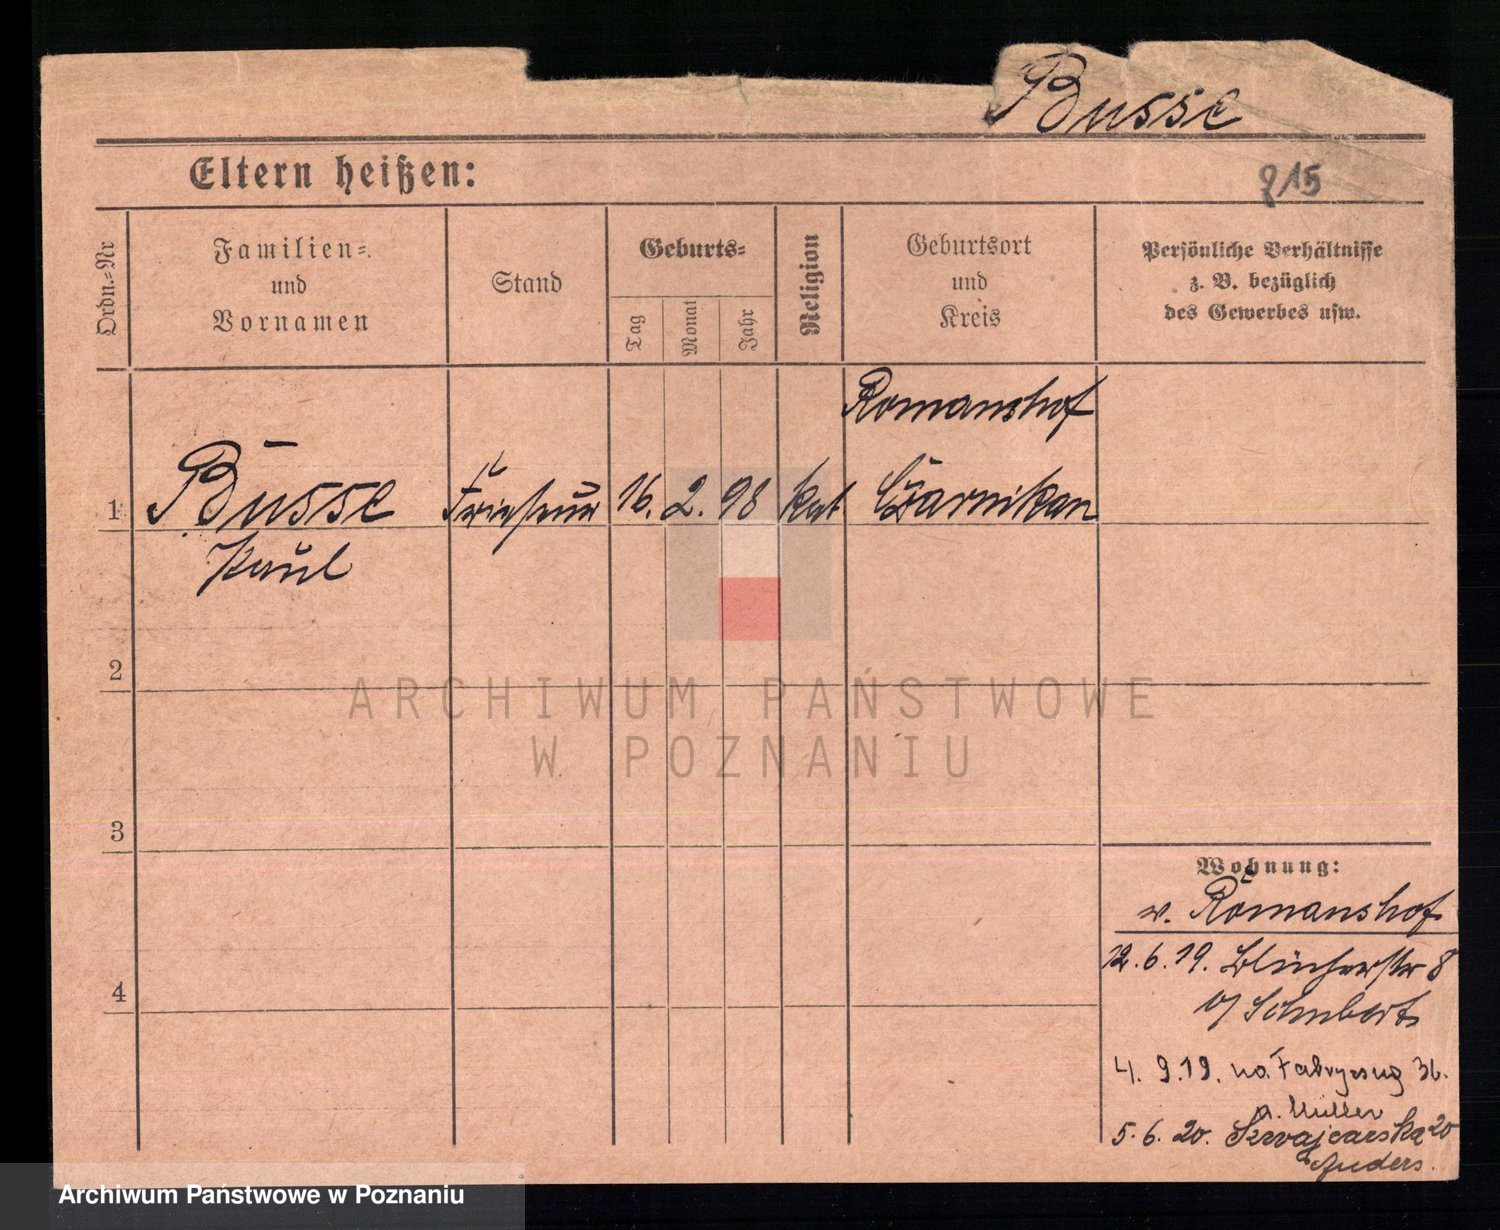 Busse
Eltern heißen:
Ordn.-Nr
Familien-
und
Vornamen
Stand
Geburts-
Tag
Monat
Jahr
Religion
Geburtsort
und
Kreis
Persönliche Verhältnisse
z. B. bezüglich
des Gewerbes usw.
Romanshof
1 Busse Friseur 16. 2. 98 kat. Czarnikau
Paul
2
ARCHIWUM PAŃSTWOWE
W POZNANIU
3
4
Wohnung:
v. Romanshof
12.6.19. Blücherstr 8
b/ Schubert
4. 9.19.
a. Müller
5.6.20. Szwajcarska 20
Anders.
Archiwum Państwowe w Poznaniu